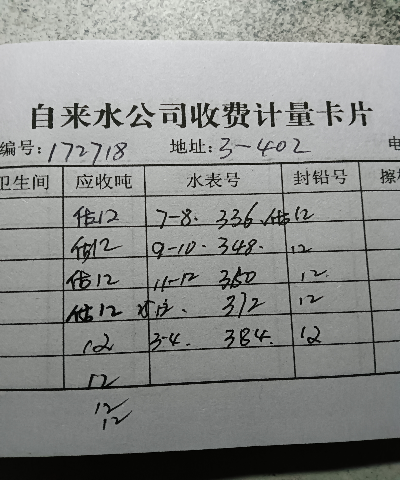 自来水公司收费计量卡片
编号:172718 地址:3-402 电
卫生间 应收吨 水表号 封铅号 擦
估12 7-8. 336. 估12
估12 9-10. 348. 12
估12 11-12 360 12.
估12 372 12
12 3-4. 384. 12
12
12
12